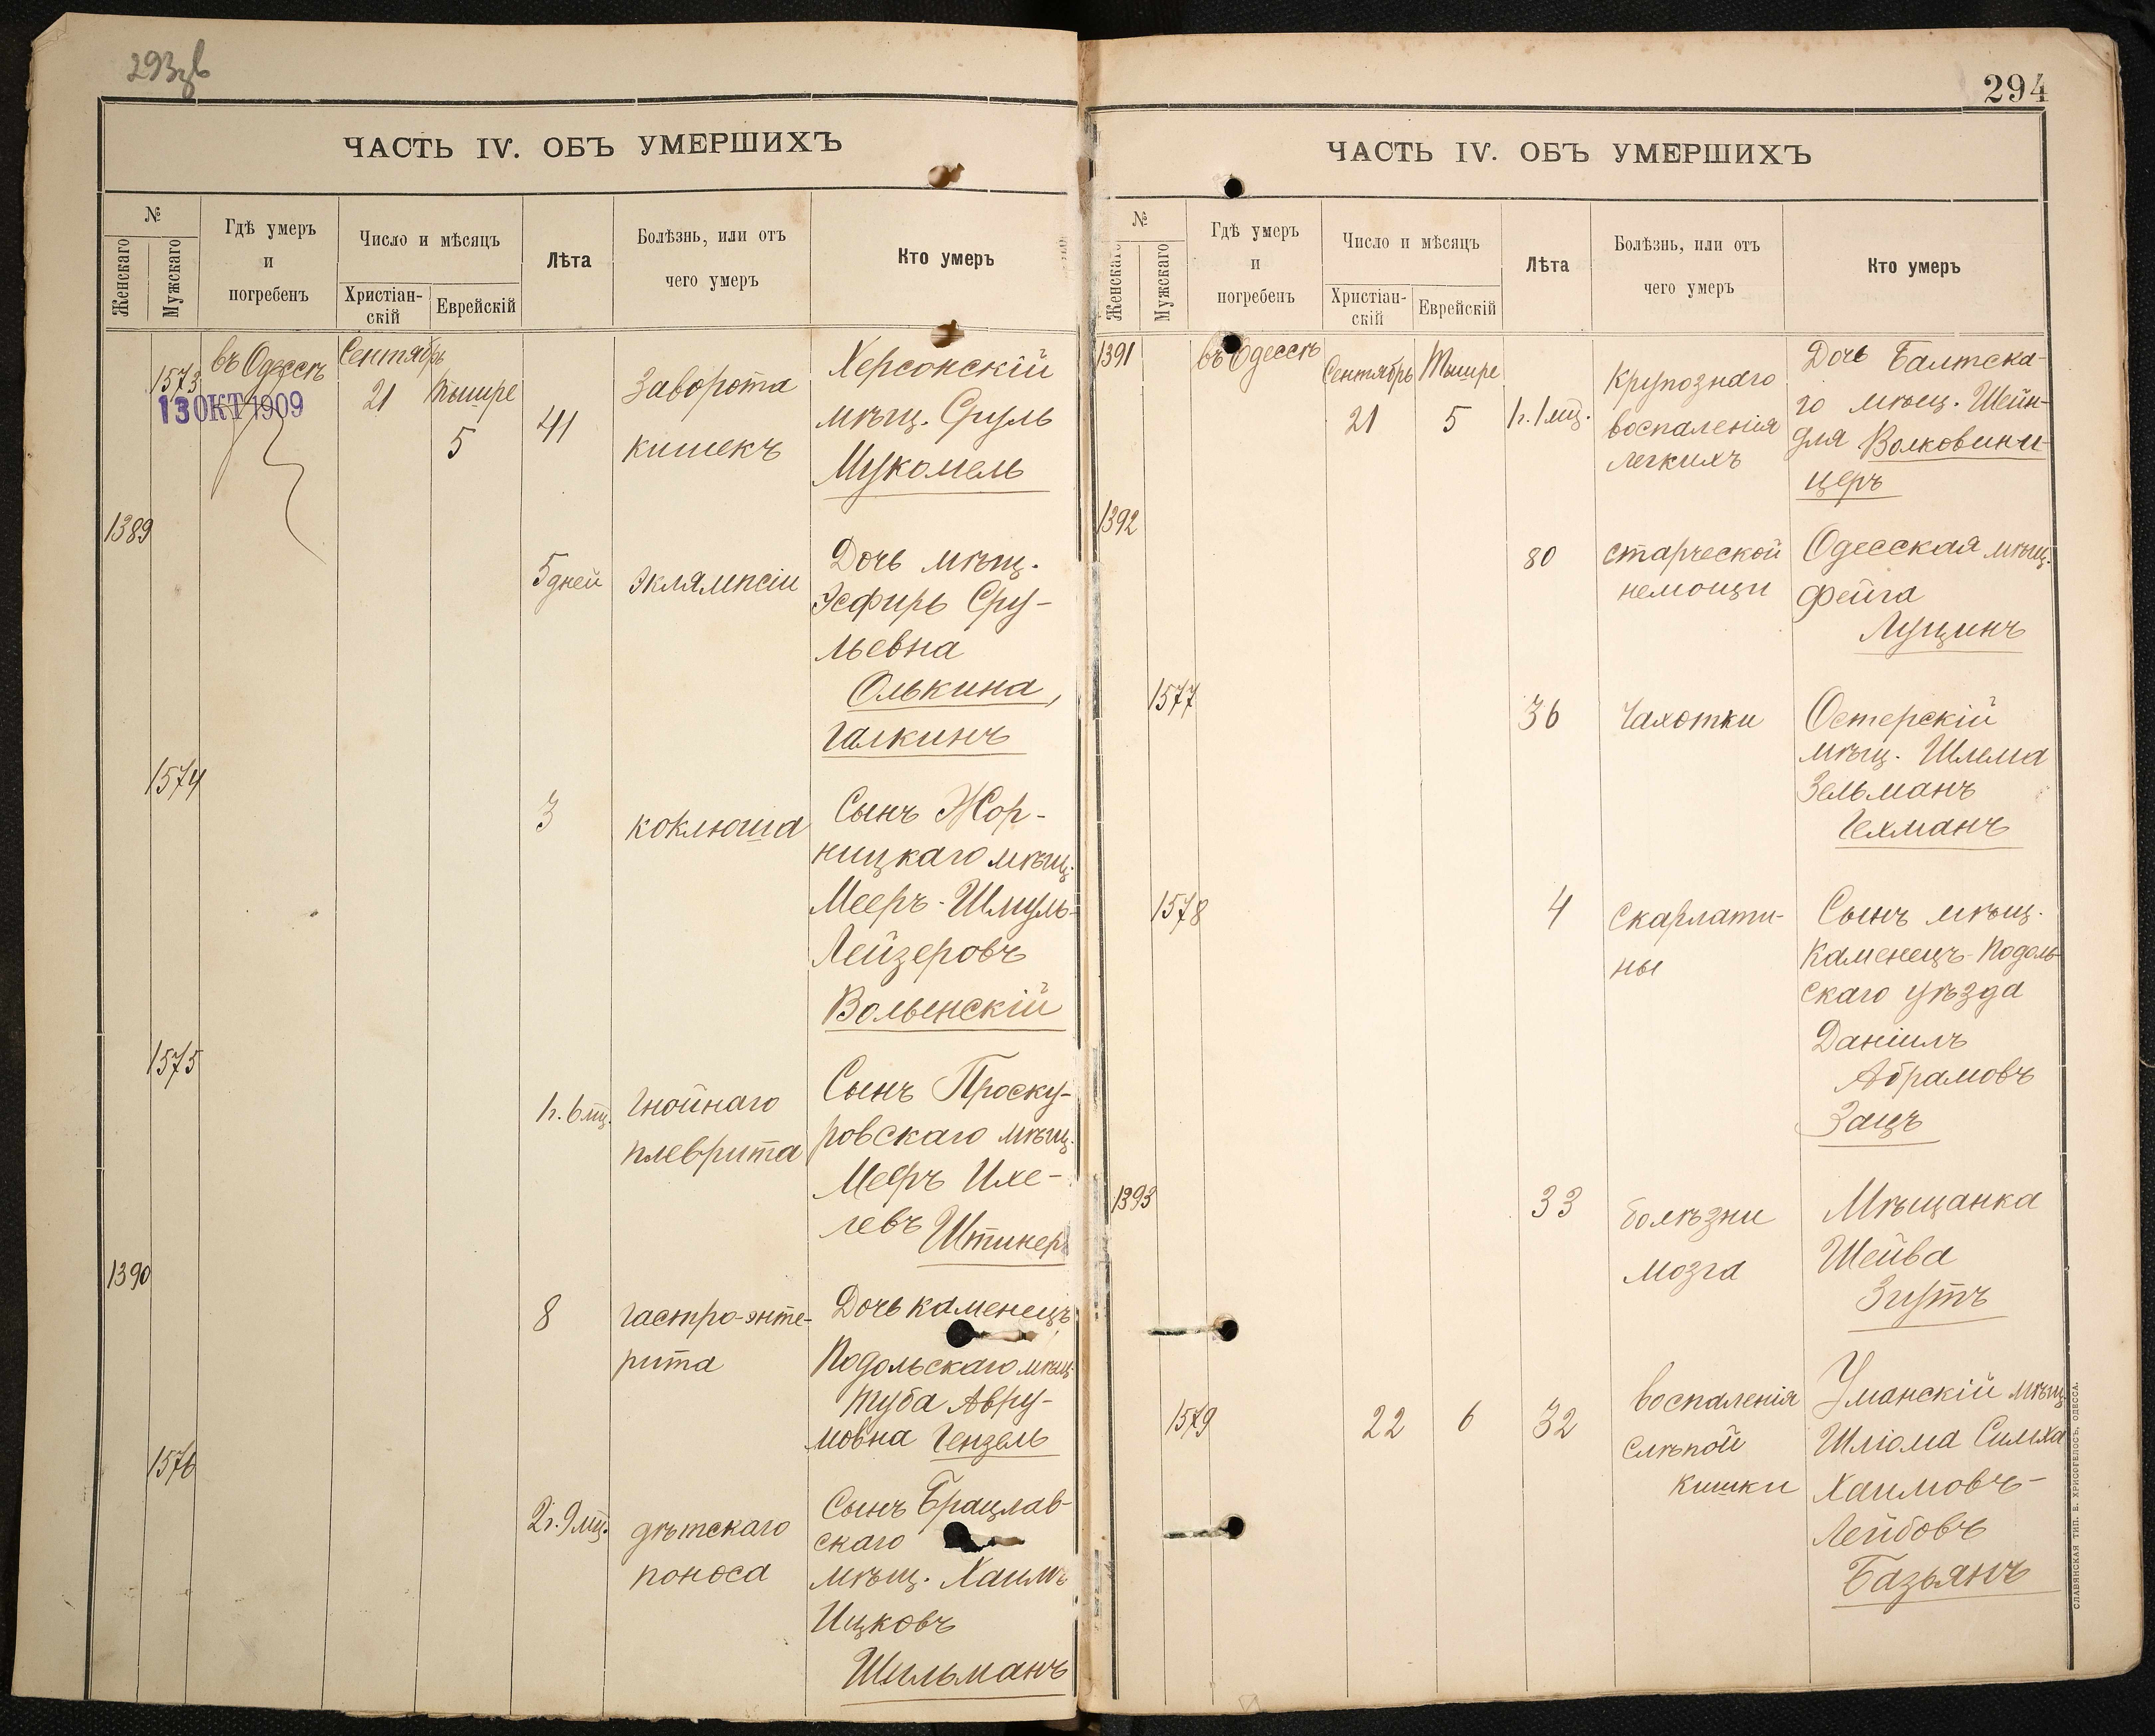 293зв
ЧАСТЬ IV. ОБЪ УМЕРШИХЪ
№
Женскаго
Мужскаго
Гдѣ умеръ
и
погребенъ
Число и мѣсяцъ
Христіан-
скій
Еврейскій
Лѣта
Болѣзнь, или отъ
чего умеръ
Кто умеръ
1573
13 ОКТ 1909
въ Одессѣ
Сентябрь
21
Тышре
5
41
Заворота
кишекъ
Херсонскій
мѣщ. Сруль
Мукомель
1389
5 дней
Эклямпсіи
Дочь мѣщ.
Эсфирь Сру-
льевна
Олькина,
Галкинъ
1574
3
коклюша
Сынъ Жор-
ницкаго мѣщ.
Мееръ-Шмуль-
Лейзеровъ
Волынскій
1575
1 г. 6 мц.
Гнойнаго
плеврита
Сынъ Проску-
ровскаго мѣщ.
Мееръ Ихе-
левъ Штинеръ
1390
8
Гастро-энте-
рита
Дочь Каменецъ
Подольскаго мѣщ.
Туба Авру-
мовна Гензель
1576
2 г. 9 мц.
дѣтскаго
поноса
Сынъ Брацлав-
скаго
мѣщ. Хаимъ
Ицковъ
Шильманъ
294
ЧАСТЬ IV. ОБЪ УМЕРШИХЪ
№
Женскаго
Мужскаго
Гдѣ умеръ
и
погребенъ
Число и мѣсяцъ
Христіан-
скій
Еврейскій
Лѣта
Болѣзнь, или отъ
чего умеръ
Кто умеръ
1391
въ Одессѣ
Сентябрь
21
Тышре
5
1 г. 1 мц.
Крупознаго
воспаленія
легкихъ
Дочь Балтска-
го мѣщ. Шейн-
для Волковини-
церъ
1392
80
старческой
немощи
Одесская мѣщ.
Фейга
Лущинъ
1577
36
Чахотки
Остерскій
мѣщ. Шлема
Зельманъ
Гехманъ
1578
4
Скарлати-
ны
Сынъ мѣщ.
Каменецъ-Подоль-
скаго уѣзда
Даніилъ
Абрамовъ
Зацъ
1393
33
болѣзни
мозга
Мѣщанка
Шейва
Зистъ
1579
22
6
32
воспаленія
слѣпой
кишки
Уманскій мѣщ.
Шліома Симха
Хаимовъ-
Лейбовъ
Базьянъ
СЛАВЯНСКАЯ ТИП. Е. ХРИСОГЕЛОСЪ, ОДЕССА.